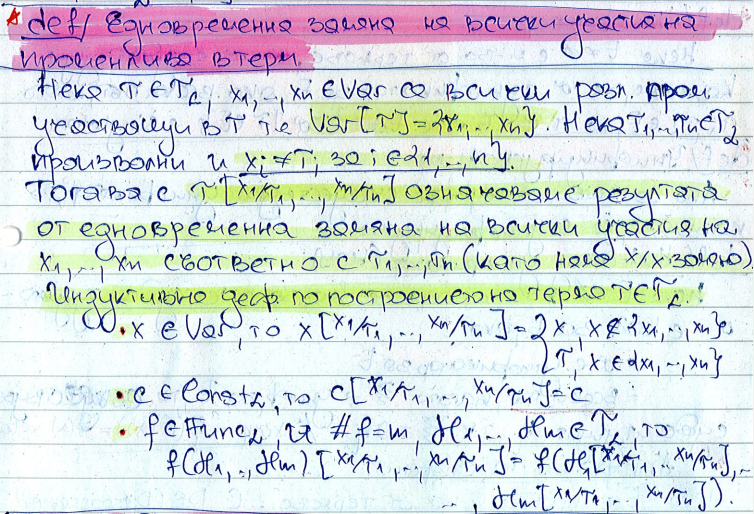 def/ Едновременна замяна на всички участия на
променлива в терм.
Нека τ ∈ T_L, x₁,..,xₙ ∈ Var са всички разл. пром.
участващи в τ т.е. Var[τ]={x₁,..,xₙ}. Нека τ₁,..,τₙ∈T_L
произволни и xᵢ ≠ τᵢ за i ∈ {1,..,n}.
Тогава с τ[x₁/τ₁,..,xₙ/τₙ] означаваме резултата
от едновременна замяна на всички участия на
x₁,..,xₙ съответно с τ₁,..,τₙ (като няма x/x замяна).
Индуктивно деф по построението на терма τ∈T_L:
• x ∈ Var, то x[x₁/τ₁,..,xₙ/τₙ] = { x, x ∉ {x₁,..,xₙ}
{ τ, x ∈ {x₁,..,xₙ}
• c ∈ Const_L, то c[x₁/τ₁,..,xₙ/τₙ] = c
• f ∈ Func_L, и #f=m, ℋ₁,..,ℋm ∈ T_L, то
f(ℋ₁,..,ℋm)[x₁/τ₁,..,xₙ/τₙ] = f(ℋ₁[x₁/τ₁,..,xₙ/τₙ],..
.., ℋm[x₁/τ₁,..,xₙ/τₙ]).